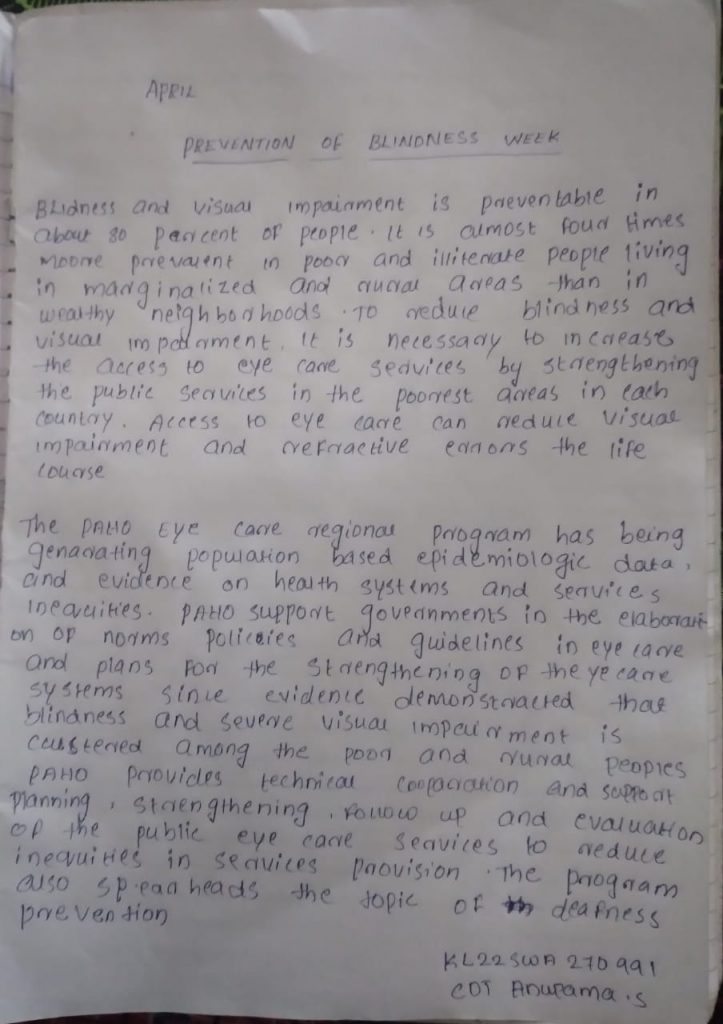 APRIL
PREVENTION OF BLINDNESS WEEK
Blidness and visual impairment is preventable in
about 80 percent of people. It is almost four times
moore prevalent in poor and illiterate people living
in marginalized and crucral areas than in
wealthy neighborhoods. To reduce blindness and
visual impairment, It is necessary to increase
the access to eye care services by strengthening
the public services in the poorest areas in each
country. Access to eye care can reduce visual
impairment and refractive errors the life
course
The PAHO Eye care regional program has being
genarating population based epidemiologic data,
and evidence on health systems and services
inequities. PAHO support governments in the elaborati
on of norms policies and guidelines in eye care
and plans for the strengthening of the ye care
systems since evidence demonstracted that
blindness and severe visual impairment is
clustered among the poor and rural peoples
PAHO provides technical cooparation and support
planning, strengthening, follow up and evaluation
of the public eye care services to reduce
inequities in services provision. The program
also spearheads the topic of deafness
prevention
KL22SWA 270991
CDT Anupama.S